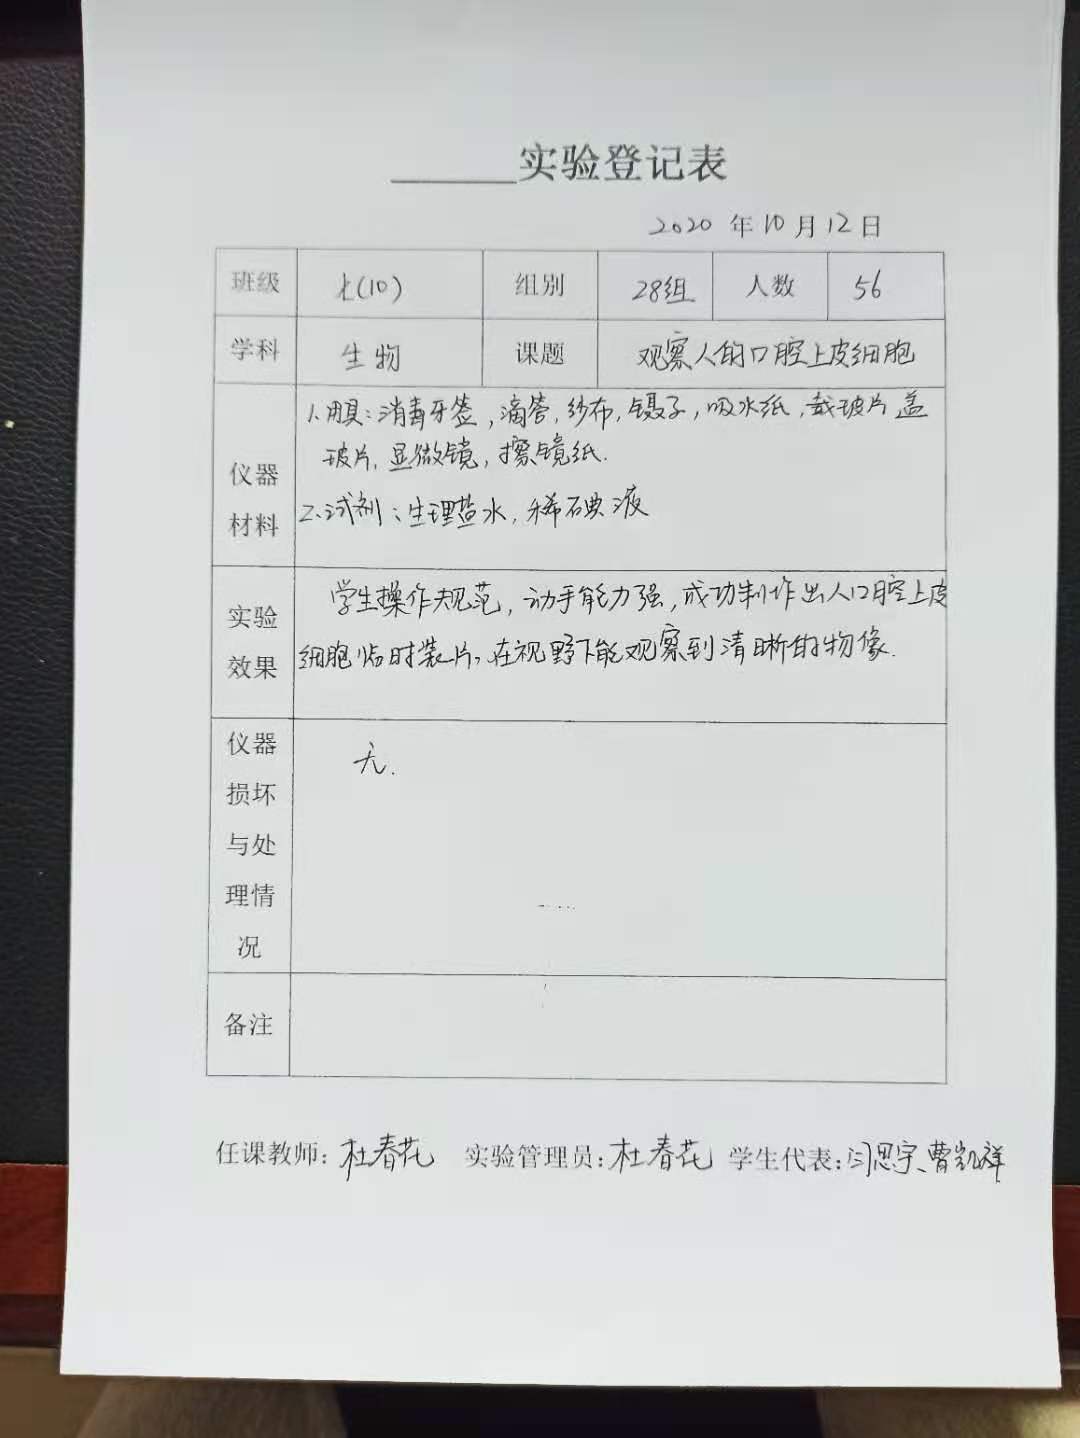 ______实验登记表
2020 年 10 月 12 日
班级 七(10) 组别 28组 人数 56
学科 生物 课题 观察人的口腔上皮细胞
仪器材料
1.用具:消毒牙签,滴管,纱布,镊子,吸水纸,载玻片,盖
玻片,显微镜,擦镜纸.
2.试剂:生理盐水,稀碘液
实验效果
学生操作规范,动手能力强,成功制作出人口腔上皮
细胞临时装片,在视野下能观察到清晰的物像.
仪器损坏与处理情况
无.
备注
任课教师:杜春花 实验管理员:杜春花 学生代表:闫思宇、曹凯祥